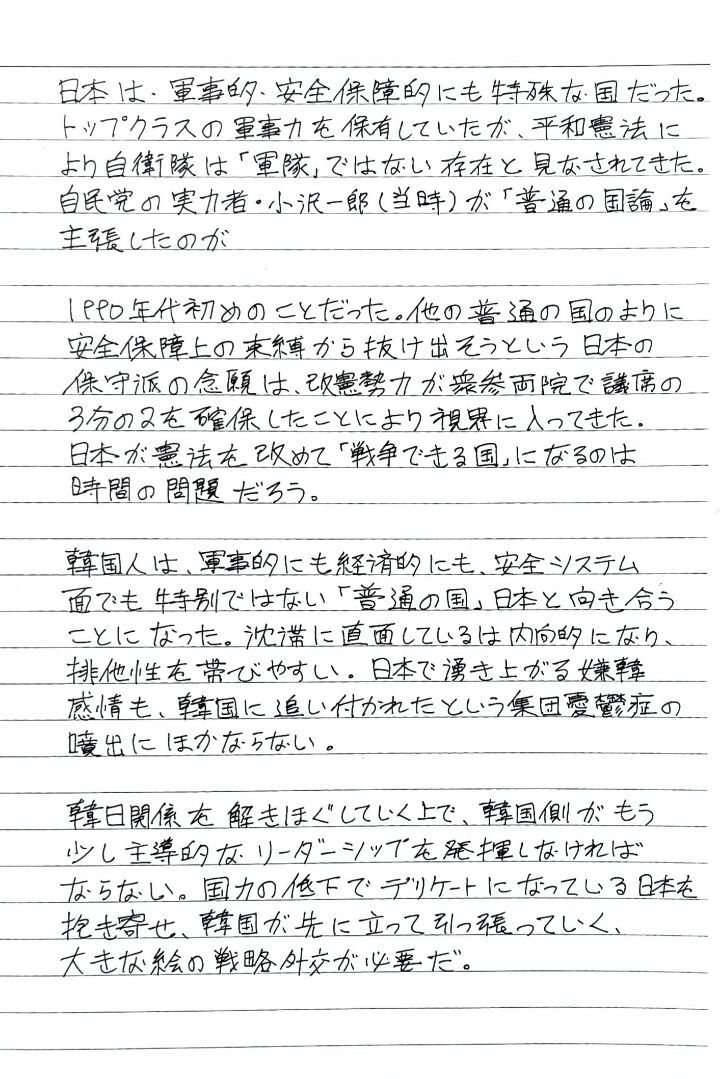 日本は、軍事的・安全保障的にも特殊な国だった。
トップクラスの軍事力を保有していたが、平和憲法に
より自衛隊は「軍隊」ではない存在と見なされてきた。
自民党の実力者・小沢一郎(当時)が「普通の国論」を
主張したのが
1990年代初めのことだった。他の普通の国のよりに
安全保障上の束縛から抜け出そうという日本の
保守派の念願は、改憲勢力が衆参両院で議席の
3分の2を確保したことにより視界に入ってきた。
日本が憲法を改めて「戦争できる国」になるのは
時間の問題だろう。
韓国人は、軍事的にも経済的にも、安全システム
面でも特別ではない「普通の国」日本と向き合う
ことになった。沈滞に直面しているは内向的になり、
排他性を帯びやすい。日本で湧き上がる嫌韓
感情も、韓国に追い付かれたという集団憂鬱症の
噴出にほかならない。
韓日関係を解きほぐしていく上で、韓国側がもう
少し主導的なリーダーシップを発揮しなければ
ならない。国力の低下でデリケートになっている日本を
抱き寄せ、韓国が先に立って引っ張っていく、
大きな絵の戦略外交が必要だ。